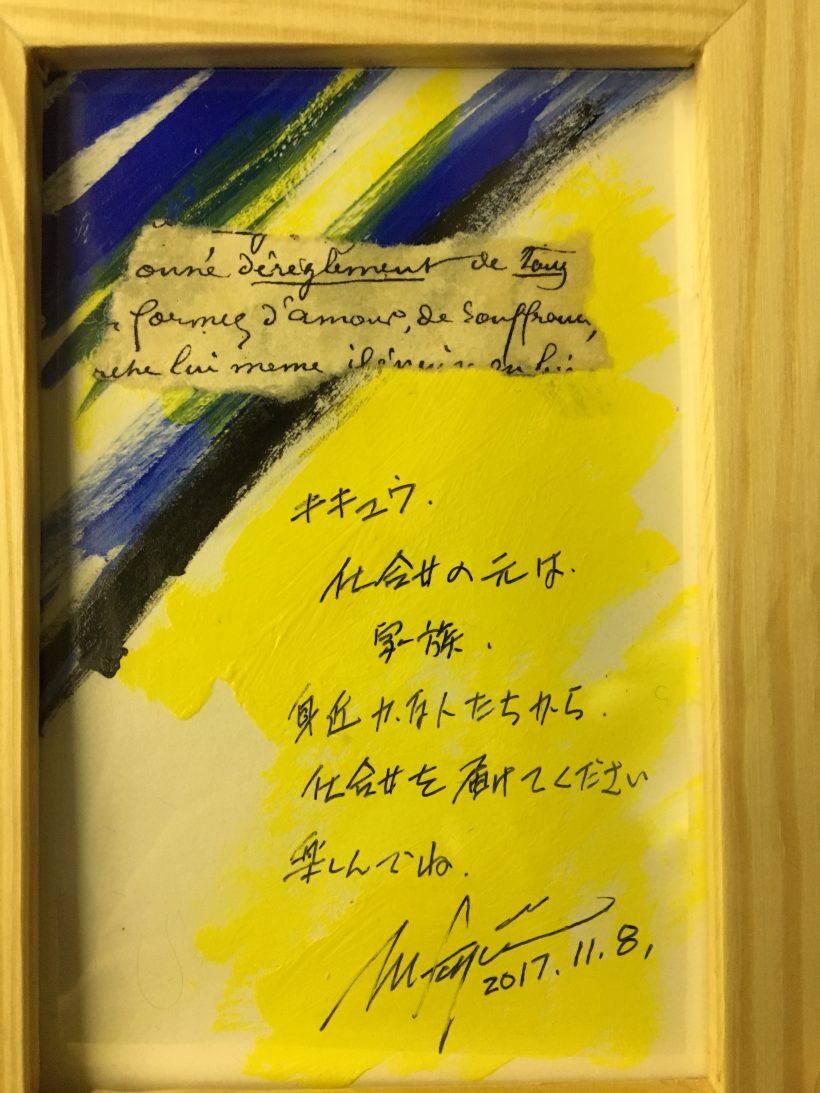 onné dérèglement de Tous
formes d'amour, de souffranc,
rche lui meme il en lui
キキュウ.
仕合せの元は.
家族.
身近かな人たちから.
仕合せを届けてください
楽しんでね.
2017.11.8,